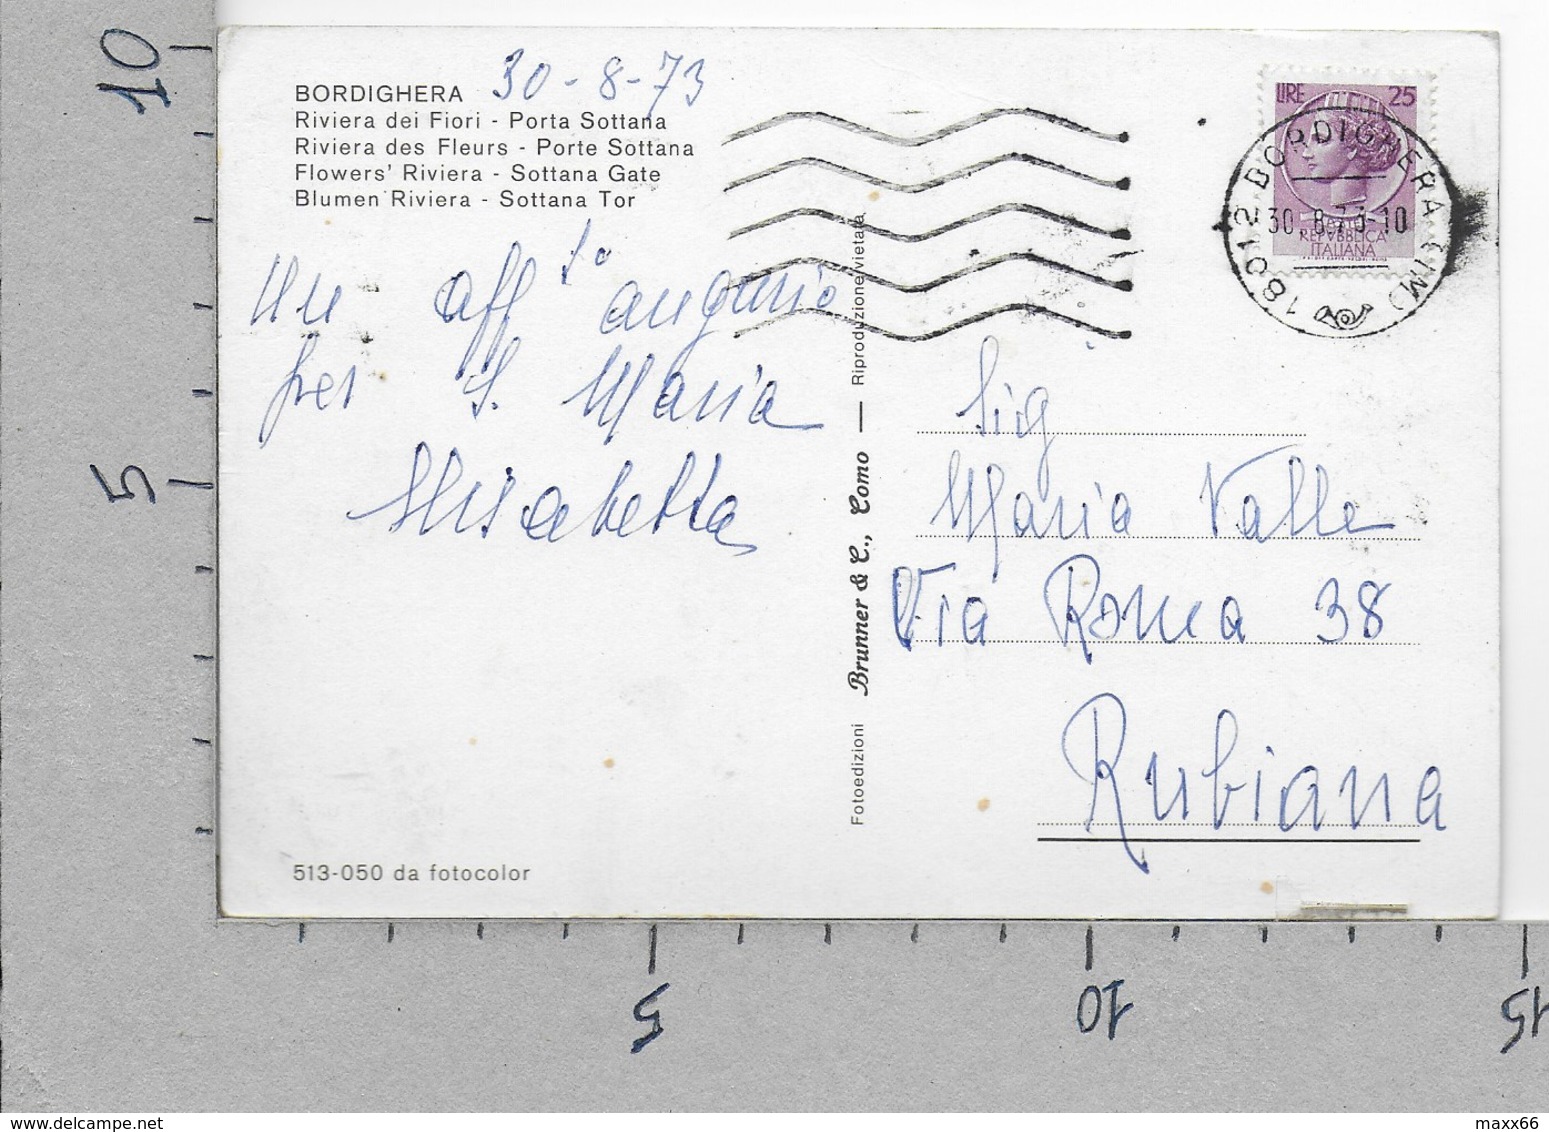 BORDIGHERA 30-8-73
Riviera dei Fiori - Porta Sottana
Riviera des Fleurs - Porte Sottana
Flowers' Riviera - Sottana Gate
Blumen Riviera - Sottana Tor
Un aff.to augurio
per S. Maria
Elisabetta
513-050 da fotocolor
Fotoedizioni Brunner & C., Como — Riproduzione vietata
LIRE 25
REPVBBLICA
ITALIANA
18012 BORDIGHERA (IM)
30-8-73-10
Sig
Maria Valle
Via Roma 38
Rubiana
10
5
5
10
15
www.delcampe.net
maxx66